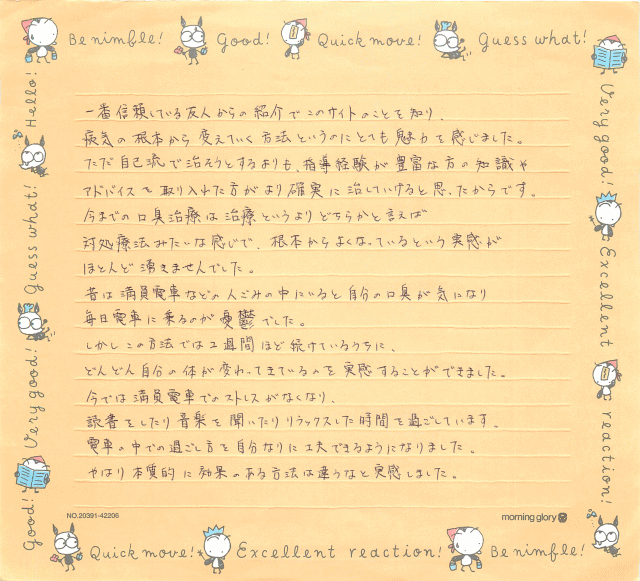 Be nimfle! Good! Quick move! Guess what!
Hello! Guess what! Very good! Good!
一番信頼している友人からの紹介でこのサイトのことを知り、
病気の根本から変えていく方法というのにとても魅力を感じました。
ただ自己流で治そうとするよりも、指導経験が豊富な方の知識や
アドバイスを取り入れた方がより確実に治していけると思ったからです。
今までの口臭治療は治療というよりどちらかと言えば
対処療法みたいな感じで、根本からよくなっているという実感が
ほとんど湧きませんでした。
昔は満員電車などの人ごみの中にいると自分の口臭が気になり
毎日電車に乗るのが憂鬱でした。
しかしこの方法では2週間ほど続けているうちに、
どんどん自分の体が変わってきているのを実感することができました。
今では満員電車でのストレスがなくなり、
読書をしたり音楽を聞いたりリラックスした時間を過ごしています。
電車の中での過ごし方を自分なりに工夫できるようになりました。
やはり本質的に効果のある方法は違うなと実感しました。
Very good! Excellent reaction!
NO.20391-42206
morning glory
Quick move! Excellent reaction! Be nimfle!